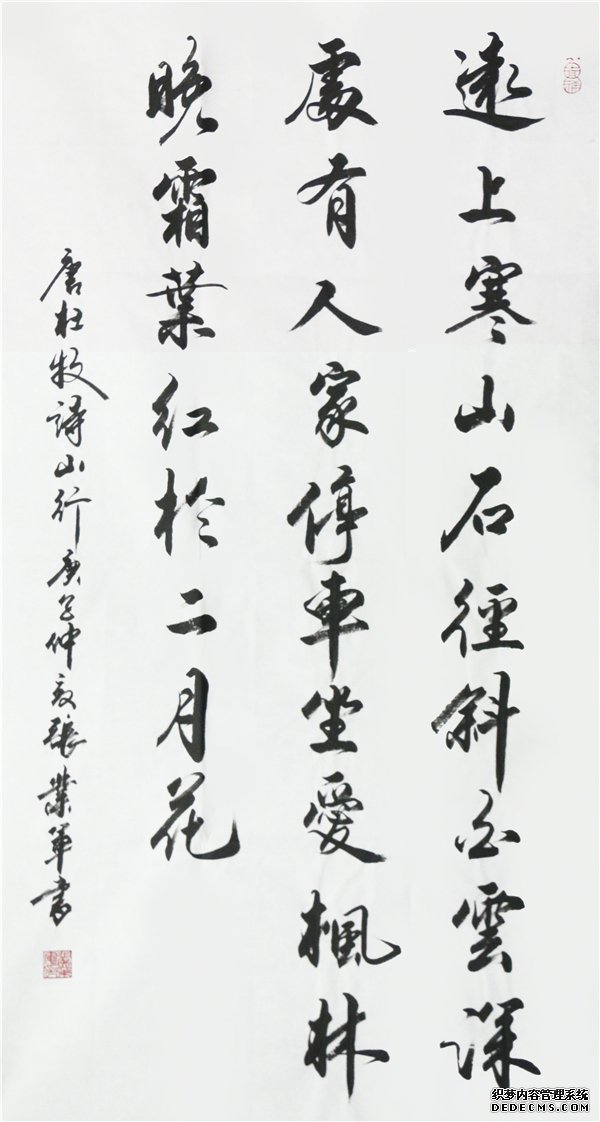 遠上寒山石徑斜白雲深
處有人家停車坐愛楓林
晚霜葉紅於二月花
唐杜牧詩山行庚子仲夏張業軍書
织梦内容管理系统
DEDECMS.COM